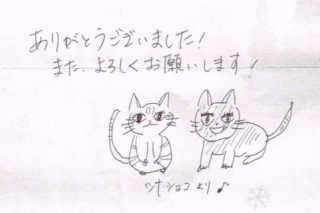 ありがとうございました!
また、よろしくお願いします!
ショコ より ♪